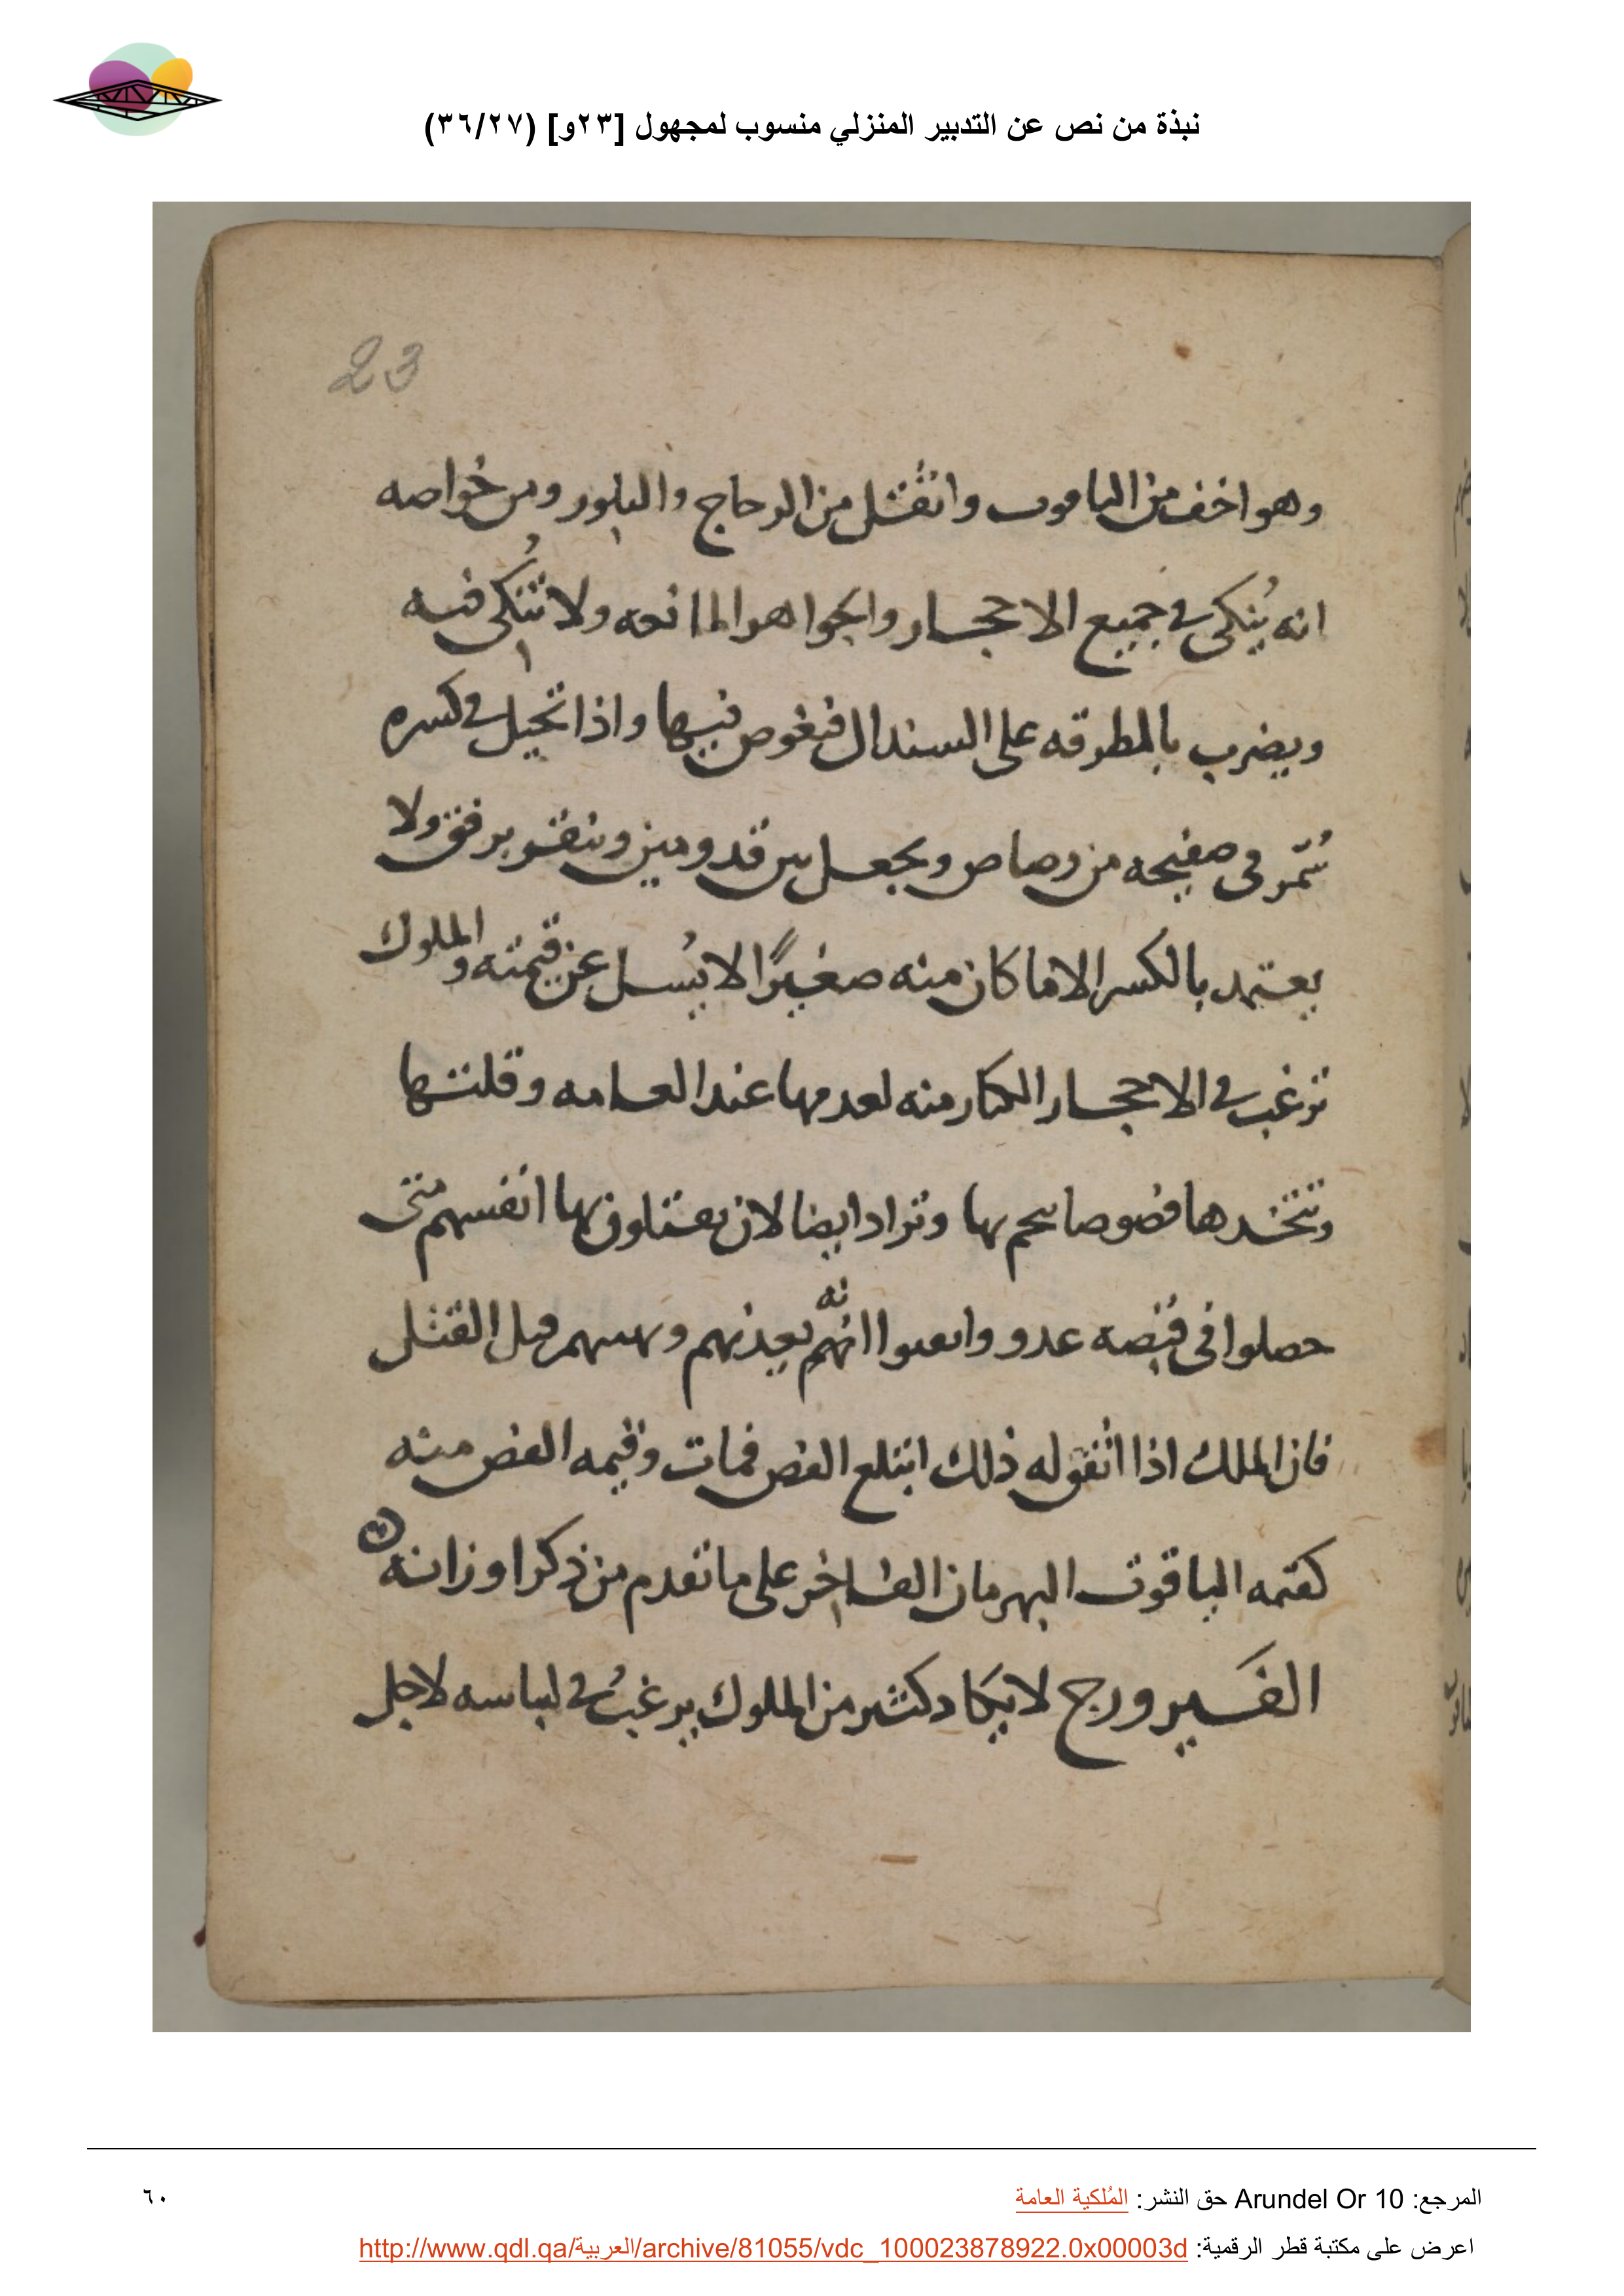 نبذة من نص عن التدبير المنزلي منسوب لمجهول [٢٣و] (٣٦/٢٧)
23
وهو اخف من الياقوت واثقل من الزجاج والبلور ومن خواصه
انه يُنكى في جميع الاحجار والجواهر المانعه ولا تُنكى فيه
ويضرب بالمطرقه على السندال فيغوص فيها واذا تحيل في كسره
سُمّر في صفيحه من رصاص ويجعل بين قدومين وينقر برفق ولا
يعتمد بالكسر الا ما كان منه صغيرًا لا يُسل عن قيمته والملوك
ترغب في الاحجار الكبار منه لعدمها عند العامه وقلتها
وتتخدها فصوصا وتراد ايضا لان يقتلون بها انفسهم متى
حصلوا في قبضه عدو انهم يعذبهم قبل القتل
فان الملك اذا اتفق له ذلك ابتلع الفص فمات وقيمه الفص منه
كقيمه الياقوت البهرمان الفاخر على ما تقدم من ذكر اوزانه
الفَيروزج لا يكاد كثير من الملوك يرغبُ في لباسه لاجل
المرجع: Arundel Or 10 حق النشر: المُلكية العامة
٦٠
اعرض على مكتبة قطر الرقمية: http://www.qdl.qa/العربية/archive/81055/vdc_100023878922.0x00003d